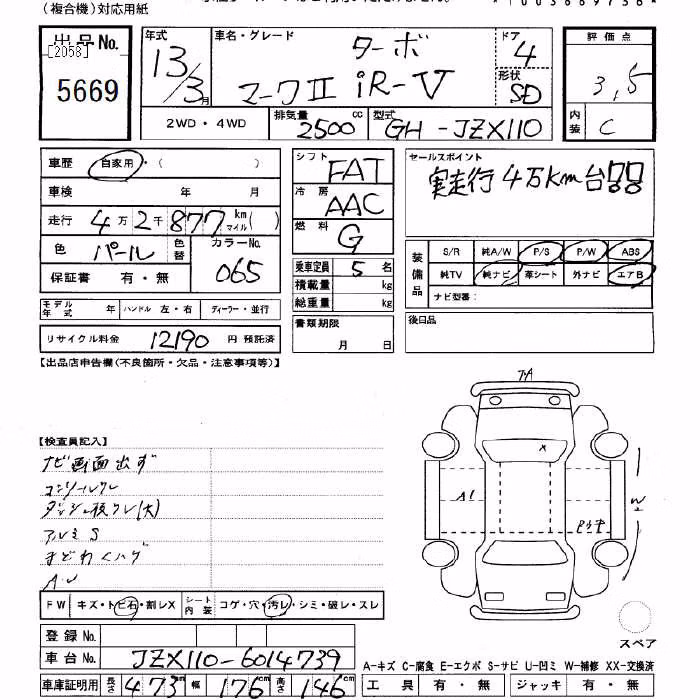 (複合機)対応用紙
出品No.
[2058]
5669
年式
13/3月
車名・グレード
ターボ
マークII iR-V
ドア
4
形状
SD
評価点
3,5
内装
C
2WD・4WD
排気量
2500cc
型式
GH-JZX110
車歴 自家用・( )
車検 年 月
走行 4万2千877km マイル( )
色 パール 色替
カラーNo.
065
保証書 有・無
シフト FAT
冷房 AAC
燃料 G
乗車定員 5名
積載量 kg
総重量 kg
書類期限
月 日
セールスポイント
実走行4万km台
装備品
S/R 純A/W P/S P/W ABS
純TV 純ナビ 革シート 外ナビ エアB
ナビ型番:
モデル年式 年 ハンドル 左・右 ディーラー・並行
リサイクル料金 12190円 預託済
後日品
【出品店申告欄(不良箇所・欠品・注意事項等)】
【検査員記入】
ナビ画面出ず
コンソールワレ
アルミS
A1
W
FW キズ・トビ石・割レX シート内装 コゲ・穴・汚レ・シミ・破レ・スレ
登録No.
車台No. JZX110-6014739
車庫証明用 長さ 473cm 幅 176cm 高さ 146cm
スペア
A-キズ C-腐食 E-エクボ S-サビ U-凹ミ W-補修 XX-交換済
工具 有・無 ジャッキ 有・無